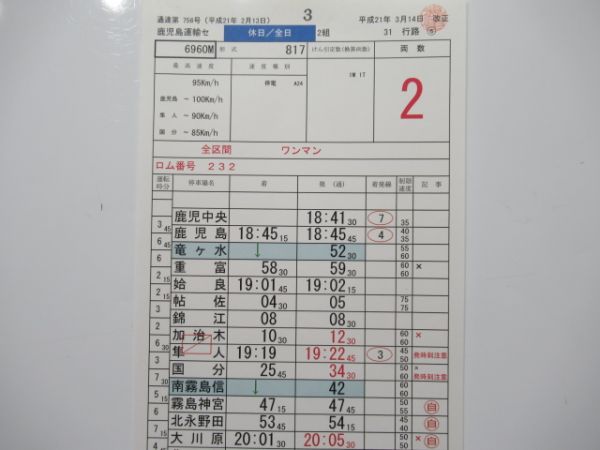 通達第 756号(平成21年 2月13日) 3 平成21年 3月14日 改正
鹿児島運輸セ 休日/全日 2組 31 行路
6960M 形式 817 けん引定数(換算両数) 両数
最高速度 速度種別 1M 1T 2
95Km/h 停電 A24
鹿児島 ~ 100Km/h
隼人 ~ 90Km/h
国分 ~ 85Km/h
全区間 ワンマン
ロム番号 232
運転時分 停車場名 着 発(通) 着発線 制限速度 記事
鹿児中央 18:41 30 7 35
3 45 鹿児島 18:45 15 18:45 45 4 40 35
6 45 竜ヶ水 ↓ 52 30 55 60
6 重富 58 30 59 30 60 60 ×
姶良 19:01 45 19:02 15
帖佐 04 30 05 75 75
錦江 08 08 30
加治木 10 30 12 30 60 60 ×
6 30 隼人 19:19 19:22 45 3 45 50 発時刻注意
3 国分 25 45 34 30 50 60 × 発時刻注意
7 30 南霧島信 ↓ 42 60 60
5 15 霧島神宮 47 15 47 45 50 55 自
6 北永野田 53 45 54 55 60 自
7 15 大川原 20:01 30 20:05 30 50 50 × 自